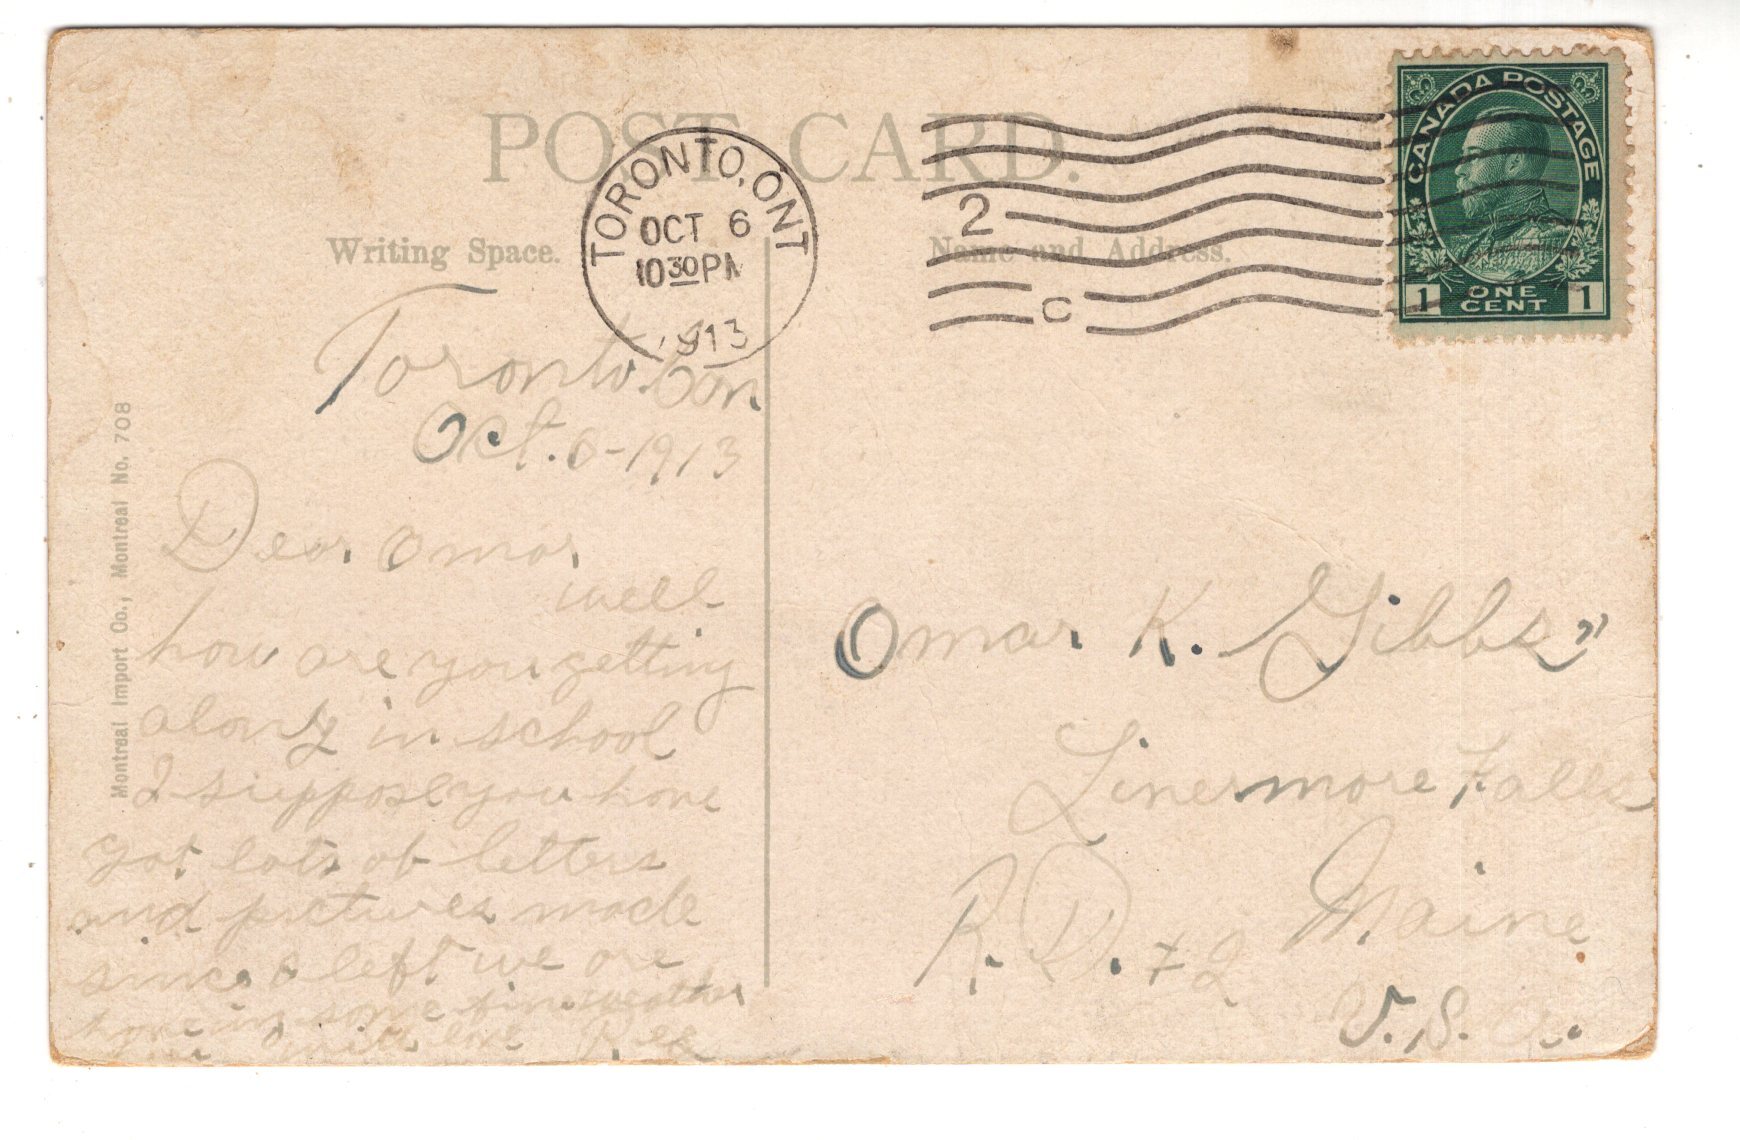 POST CARD.
TORONTO, ONT
OCT 6
10 30 PM
1913
2
C
CANADA POSTAGE
1 ONE CENT 1
Writing Space.
Name and Address.
Montreal Import Co., Montreal No. 708
Toronto. Can
Oct. 6-1913
Dear Omar
well
how are you getting
along in school
I suppose you have
got lots of letters
and pictures made
since I left we are
having some fine weather
with love
Omar K. Gibbs"
Livermore Falls
Maine
R.D. #2
U.S.A.